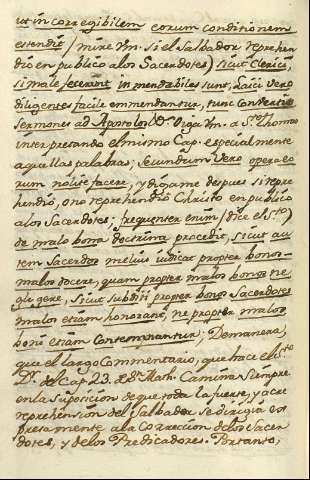 ut incorregibilem eorum conditionem
estendit / mire Vm. si el Salbador reprehen
dió en publico a los Sacerdotes) sicut Clerici
si male fecerint inmendabiles sunt, Laici vero
diligentes facile emmendantur, tunc
Sermones ad Apostolos &. Oiga Vm. a Sto. Thomas
interpretando el mismo Cap. especialmente
aquellas palabras; secundum vero opera eo
rum nolite facere, y digame despues si repre
hendió, o no reprehendió Christo en publico
a los Sacerdotes; frequenter enim / dice el Sto.)
de malo bona doctrina procedit, sicut au
tem Sacerdos melius iudicat propter bonos
malos docere, quam propter malos bonos ne
gligere, sicut subditi propter bonos Sacerdotes
malos etiam honorant, ne propter malos
boni etiam contemnantur; Demanera,
que el largo Commentario, que hace el Sto.
Dr. del cap. 23. de S. Math. Camina siempre
en la suposicion de que toda la fuerte, y acre
reprehension del Salbador se dirigia ex
presamente a la Correccion delos Sacer
dotes, y delos Predicadores. Portanto,